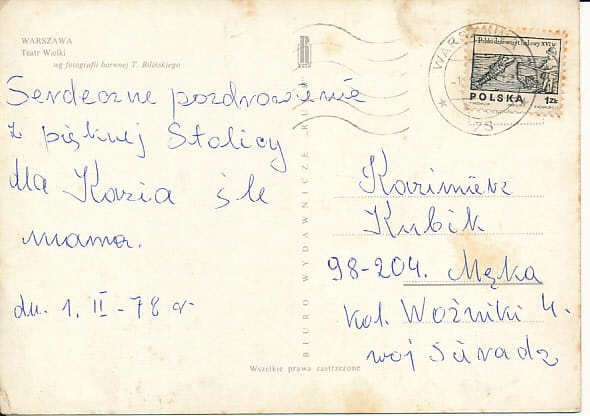 WARSZAWA
Teatr Wielki
wg fotografii barwnej T. Bilińskiego
Serdeczne pozdrowienie
z pięknej Stolicy
dla Kazia śle
mama.
dn. 1. II - 78 r
BIURO WYDAWNICZE RUCH
Wszelkie prawa zastrzeżone
WARSZAWA
78
Polski drzeworyt ludowy XVI w.
POLSKA 1ZŁ
Kazimierz
Kubik
98-204. Męka
kol. Woźniki 4.
woj Sieradz